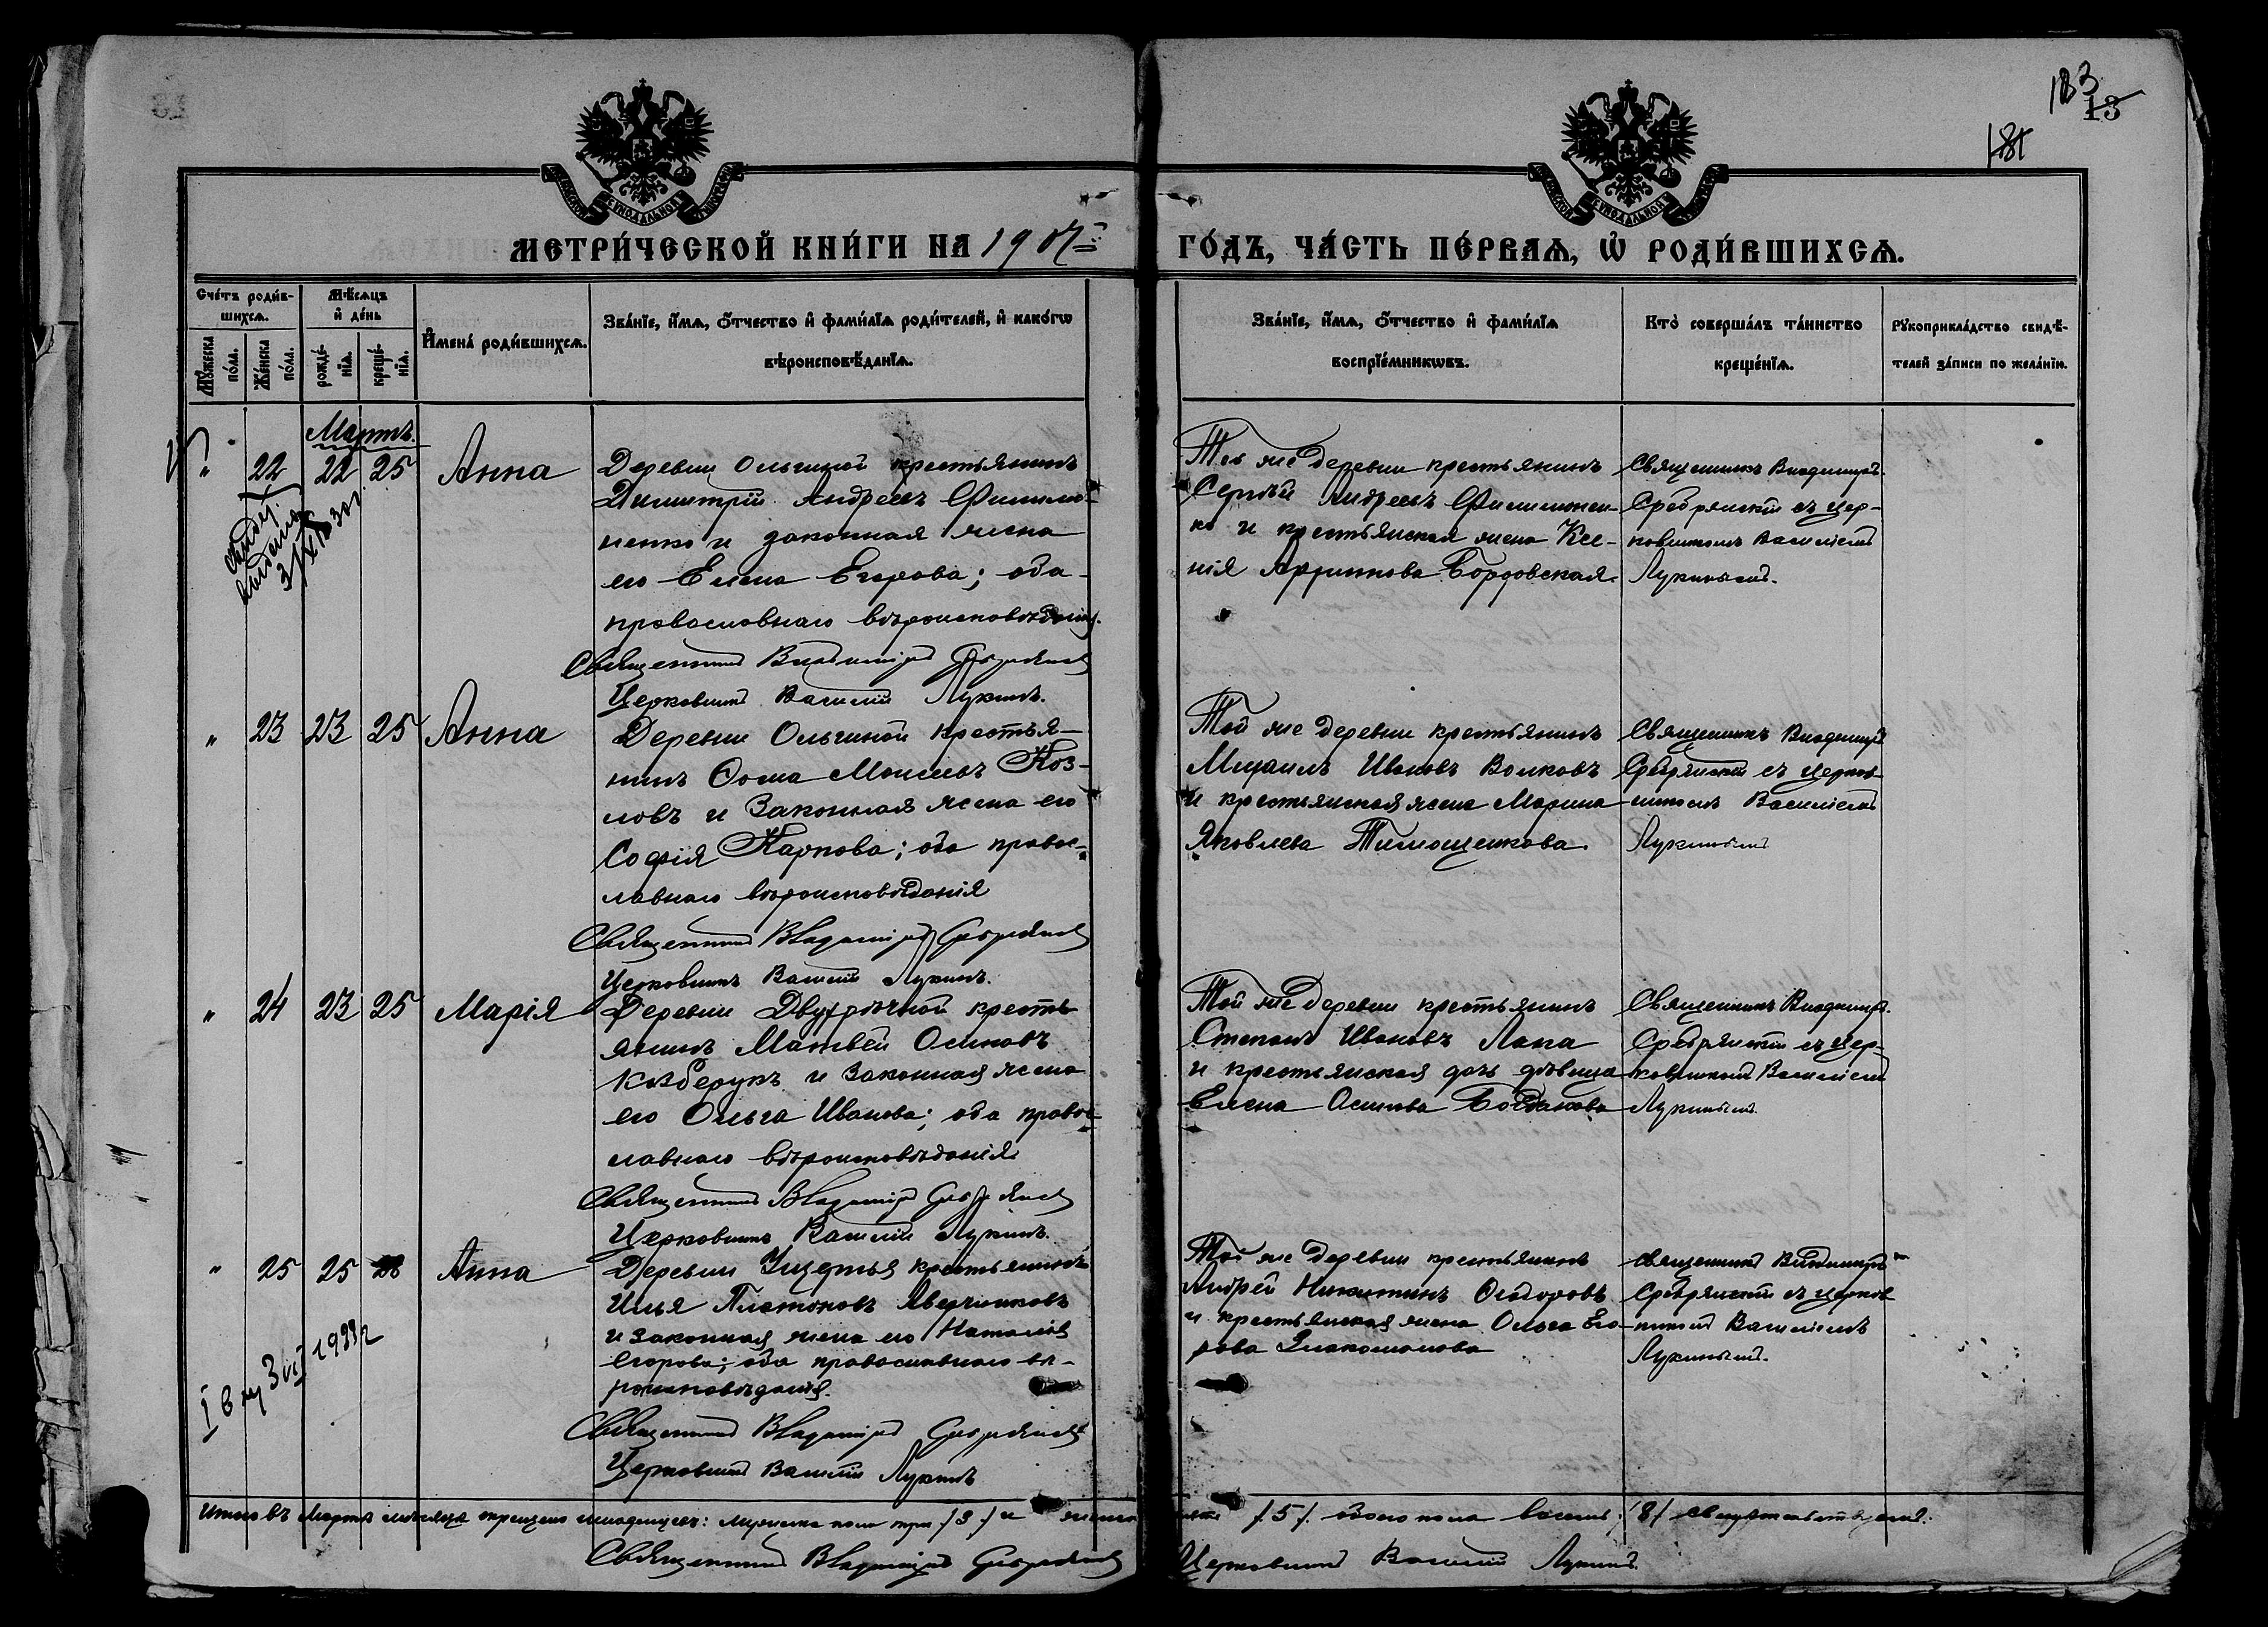 183
13
181
МЕТРИ́ЧЕСКОЙ КНИ́ГИ НА 1907 ГО́ДЪ, ЧА́СТЬ ПЕ́РВАѦ, Ѡ҆ РОДИ́ВШИХСѦ.
Сче́тъ роди́вшихсѧ.
Мꙋ́жеска по́ла.
Же́нска по́ла.
Мѣ́сѧцъ и҆ де́нь
рожде́нїѧ.
креще́нїѧ.
И҆мена̀ роди́вшихсѧ.
Зва́нїе, и҆́мѧ, ѻ҆́тчество и҆ фами́лїѧ роди́телей, и҆ како́гѡ
вѣроисповѣ́данїѧ.
Зва́нїе, и҆́мѧ, ѻ҆́тчество и҆ фами́лїѧ
воспрїе́мникѡвъ.
Кто̀ соверша́лъ та́инство
креще́нїѧ.
Рꙋкоприкла́дство свидѣ́-
телей за́писи по жела́нїю.
Мартъ.
" 22 22 25 Анна
Деревни Ольгиной крестьянинъ
Димитрій Андреевъ Филимо-
ненко и законная жена
его Елена Егорова; оба
православнаго вѣроисповѣданія.
Священникъ Владиміръ Серебрянскій
Церковникъ Василій Лукинъ.
Той же деревни крестьянинъ
Сергѣй Андреевъ Филимонен-
ко и крестьянская жена Ксе-
нія Бордовская.
Священникъ Владиміръ
Сребрянскій съ цер-
ковникомъ Василіемъ
Лукинымъ.
" 23 23 25 Анна
Деревни Ольгиной крестья-
нинъ Ѳома Моисеевъ Коз-
ловъ и законная жена его
Софія Карпова; оба правос-
лавнаго вѣроисповѣданія
Священникъ Владиміръ Серебрянскій
Церковникъ Василій Лукинъ.
Той же деревни крестьянинъ
Михаилъ Ивановъ Волковъ
и крестьянская жена Марина
Яковлева Тимощенкова.
Священникъ Владиміръ
Сребрянскій съ церков-
никомъ Василіемъ
Лукинымъ
" 24 23 25 Марія
Деревни Двухрѣчной кресть-
янинъ Матвѣй Осиповъ
и законная жена
его Ольга Иванова; оба право-
славнаго вѣроисповѣданія
Священникъ Владиміръ Серебрянскій
Церковникъ Василій Лукинъ.
Той же деревни крестьянинъ
Степанъ Ивановъ Лапа
и крестьянская дочь дѣвица
Елена Осипова
Священникъ Владиміръ
Сребрянскій съ цер-
ковникомъ Василіемъ
Лукинымъ.
" 25 25 28 Анна
Деревни крестьянинъ
Илья Платоновъ Аверчинковъ
и законная жена его Наталія
Егорова; оба православнаго вѣ-
роисповѣданія.
Священникъ Владиміръ Серебрянскій
Церковникъ Василій Лукинъ
Той же деревни крестьянинъ
Андрей Никитинъ Ѳедоровъ
и крестьянская жена Ольга Его-
рова
Священникъ Владиміръ
Сребрянскій съ церков-
никомъ Василіемъ
Лукинымъ.
Итого въ Мартѣ мѣсяцѣ крещено младенцевъ: мужеска пола три /3/ и женска пять /5/ обоего пола восемь /8/ свидѣтельствуемъ.
Священникъ Владиміръ Серебрянскій
Церковникъ Василій Лукинъ